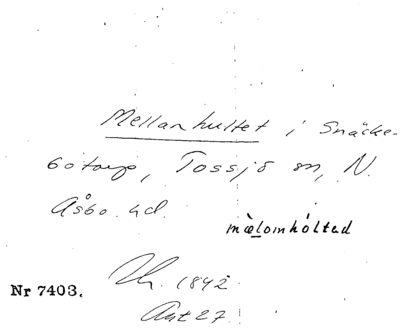 Mellanhultet i Snäcke-
botorp, Tossjö sn, N.
Åsbo hd.
mælomhóltəd
1842
Nr 7403.
Ant 27